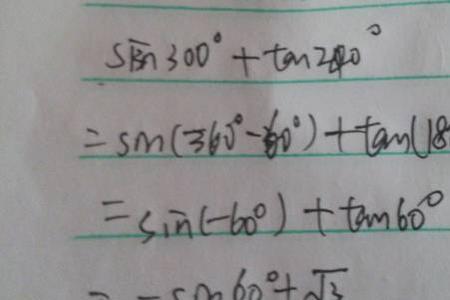 sin300°+tan240°
=sin(360°-60°)+tan(18
=sin(-60°)+tan60°
=-sin60°+√3